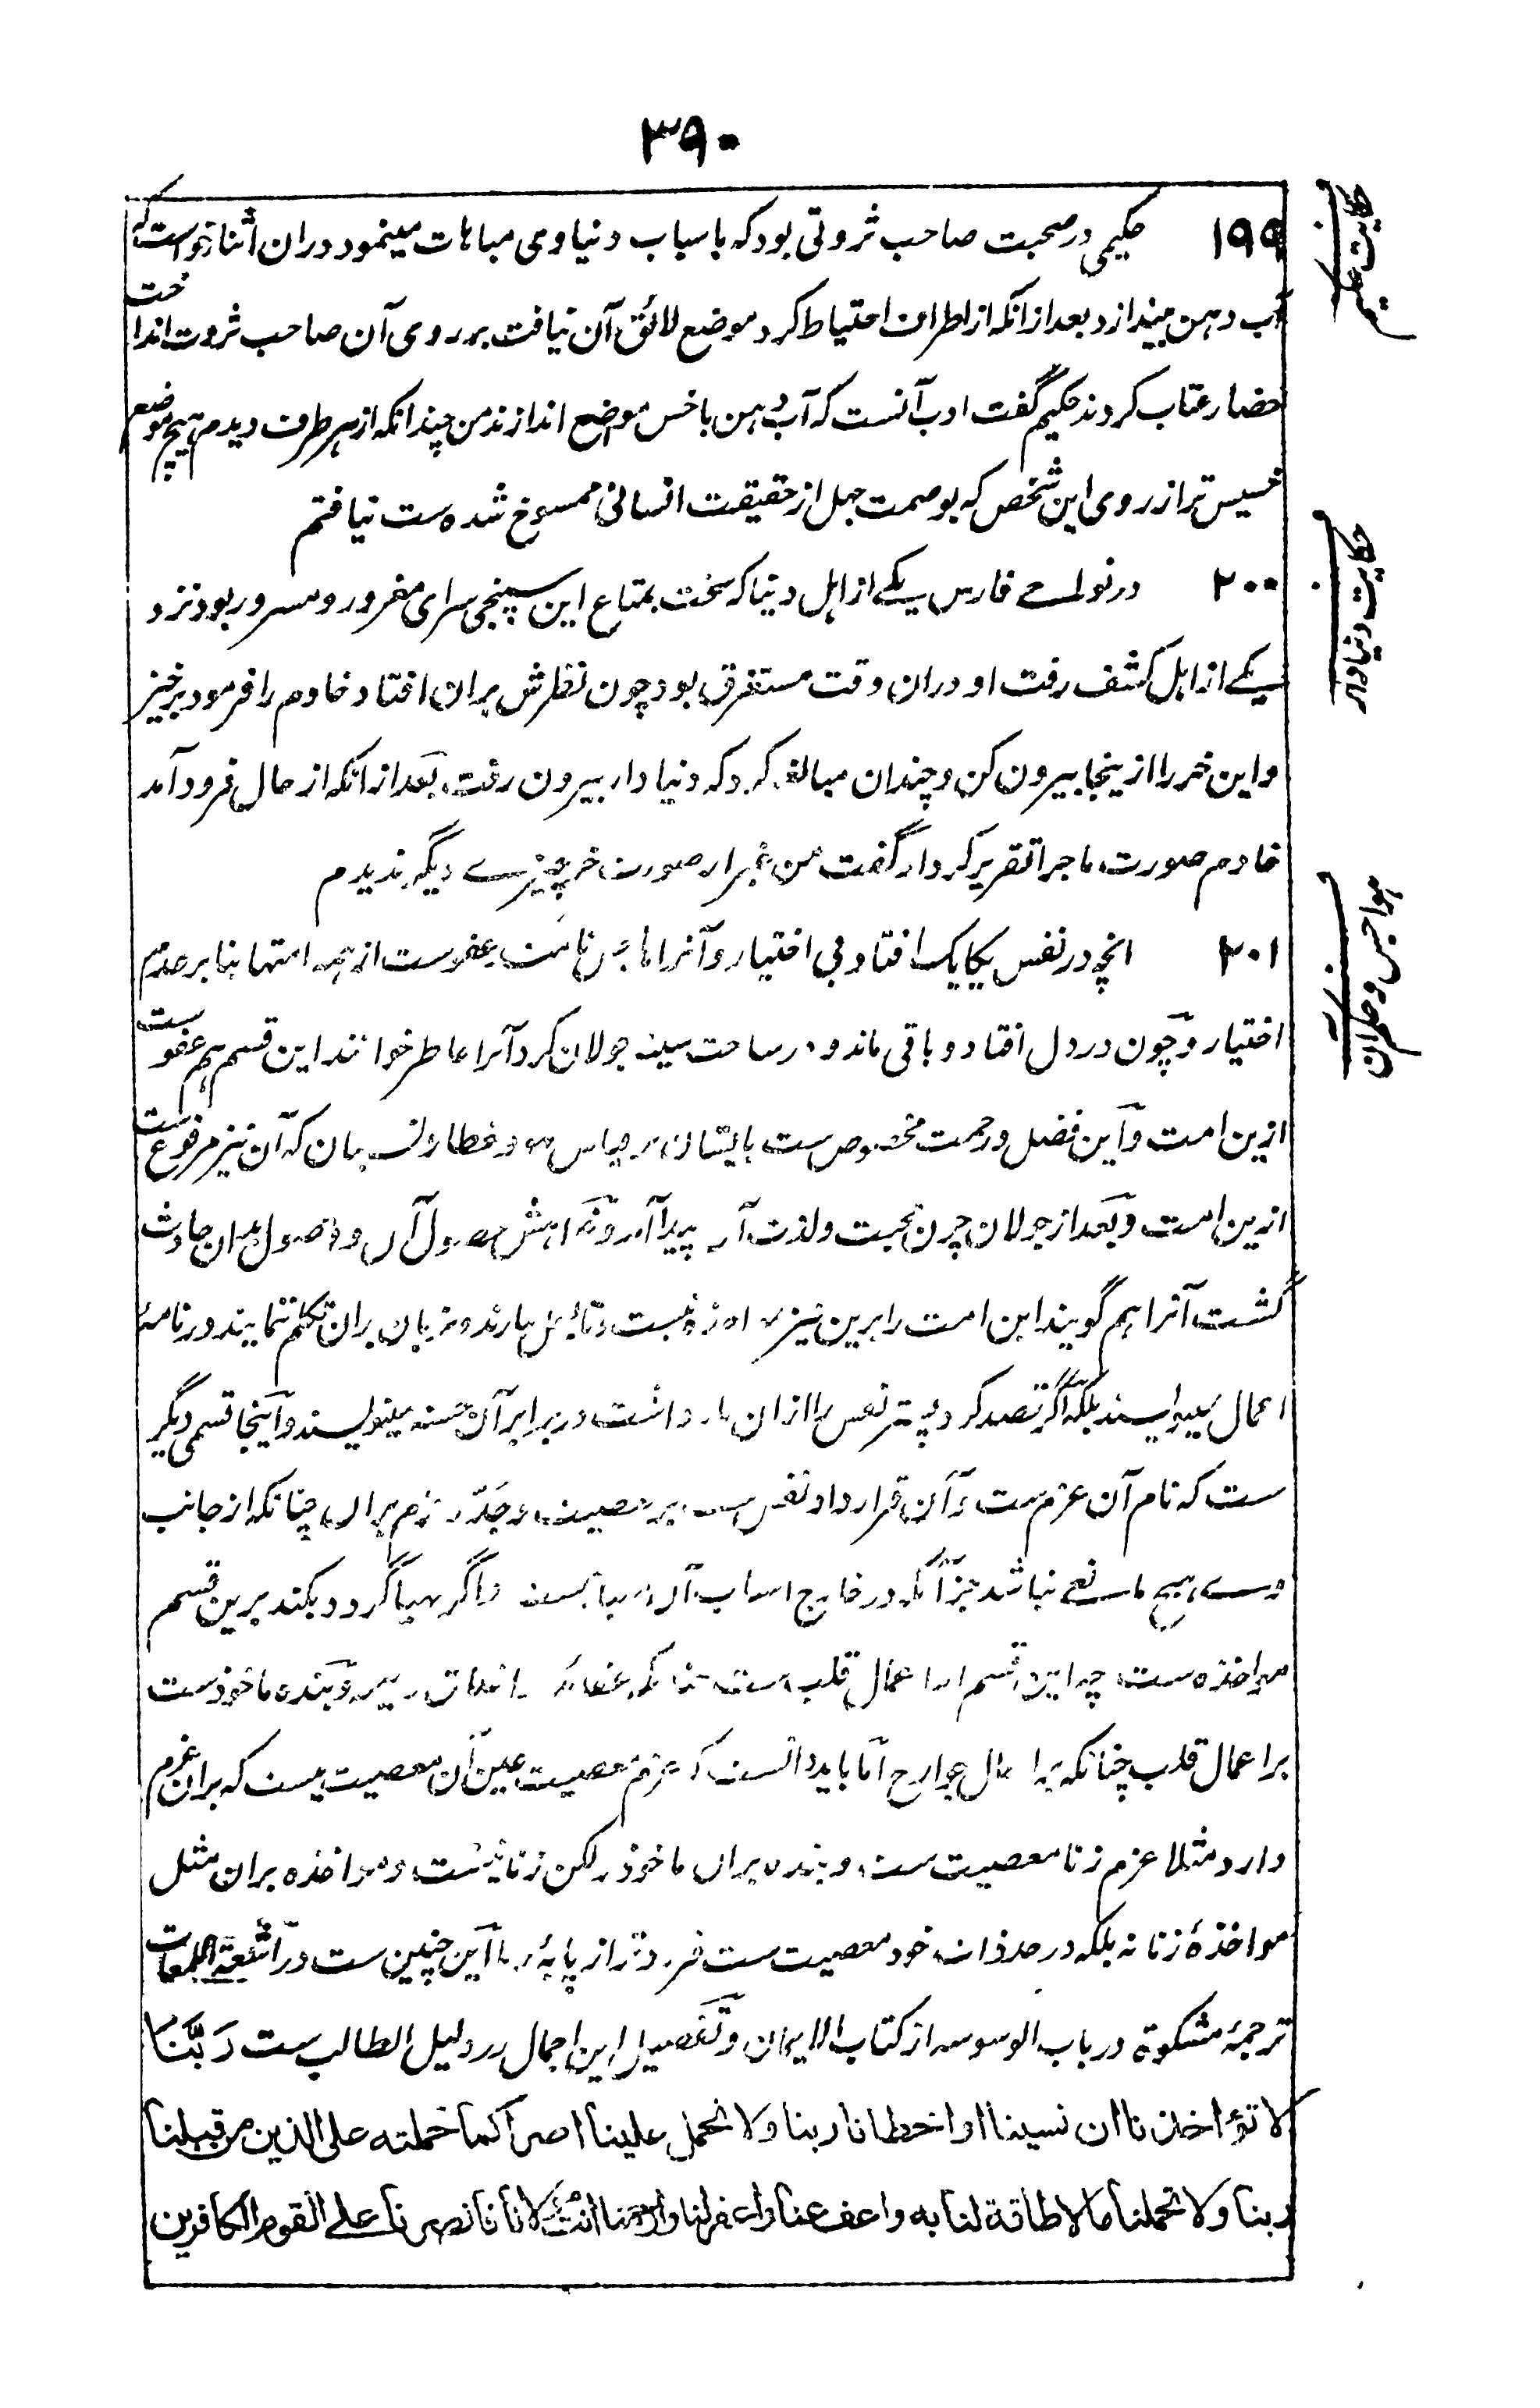 ۳۹۰
۱۹۹ حکیمی در صحبت صاحب ثروتی بود که باسباب دنیاوی مباهات مینمود دران اثنا خواست که
آب دهن بیندازد بعد ازانکه از اطراف احتیاط کرد موضع لائق آن نیافت بر روی آن صاحب ثروت انداخت
حضار عتاب کردند حکیم گفت ادب آنست که آب دهن باخس موضع اندازند من چندانکه از هر طرف دیدم هیچ موضع
خسیس تر از روی این شخص که بوصمت جهل از حقیقت انسانی ممسوخ شده ست نیافتم
۲۰۰ در نواحی فارس یکے از اہل دنیا که سخت بمتاع این سپنجی سرای مغرور و مسرور بود نزد
یکے از اہل کشف رفت او دران وقت مستغرق بود چون نظرش بران افتاد خادم را فرمود برخیز
و این خر را ازینجا بیرون کن و چندان مبالغه کرد که دنیا دار بیرون رفت بعد ازانکه از حال فرود آمد
خادم صورت ماجرا تقریر کرد او گفت من بجز از صورت خر چیزے دیگر ندیدم
۲۰۱ انچه در نفس یکایک افتاد بی اختیار و آنرا هاجس نامند عفوست از همه امتها بنا بر عدم
اختیار و چون در دل افتاد و باقی ماند و در ساحت سینه جولان کرد آنرا خاطر خوانند این قسم هم عفو ست
ازین امت و این فضل و رحمت مخصوص ست بایشان بر قیاس سهو و خطا و نسیان که آن نیز مرفوع ست
ازین امت و بعد از جولان چون محبت ولذت آن پیدا آمد و خواهش حصول آن و وصول بدان حادث
گشت آنرا هم گویند این امت را برین نیز مواخذه نیست تا بعمل نیارند و زبان بران تکلم ننمایند و در نامهٔ
اعمال نمینویسند بلکه اگر قصد کرد و پستر نفس را ازان باز داشت در برابر آن حسنه مینویسند و اینجا قسمی دیگر
ست که نام آن عزم ست و آن قرارداد نفس ست بر معصیت و جد و جزم بران چنانکه از جانب
وے هیچ مانعے نباشد جز آنکه در خارج اسباب آن مهیا نیست و اگر مهیا گردد بکند برین قسم
مواخذه ست چه این قسم از اعمال قلب ست و بنده ماخوذ ست
بر اعمال قلب چنانکه بر اعمال جوارح اما باید دانست که عزم معصیت عین آن معصیت نیست که بران عزم
دارد مثلا عزم زنا معصیت ست و بنده بران ماخوذ لکن زنا نیست و مواخذه بران مثل
مواخذهٔ زنا نه بلکه در حد ذات خود معصیت ست فروتر از پایهٔ زنا این چنین ست در اشعة اللمعات
ترجمهٔ مشکوة در باب الوسوسه از کتاب الایمان و تفصیل این اجمال در دلیل الطالب ست رَبَّنَا
لا تؤاخذنا ان نسینا او اخطانا ربنا ولا تحمل علینا اصرا کما حملته علی الذین من قبلنا
ربنا ولا تحملنا ما لا طاقة لنا به واعف عنا واغفر لنا وارحمنا انت مولانا فانصرنا علی القوم الکافرین
حکایت حکیم
حکایت دنیادار
هواجس و خواطر